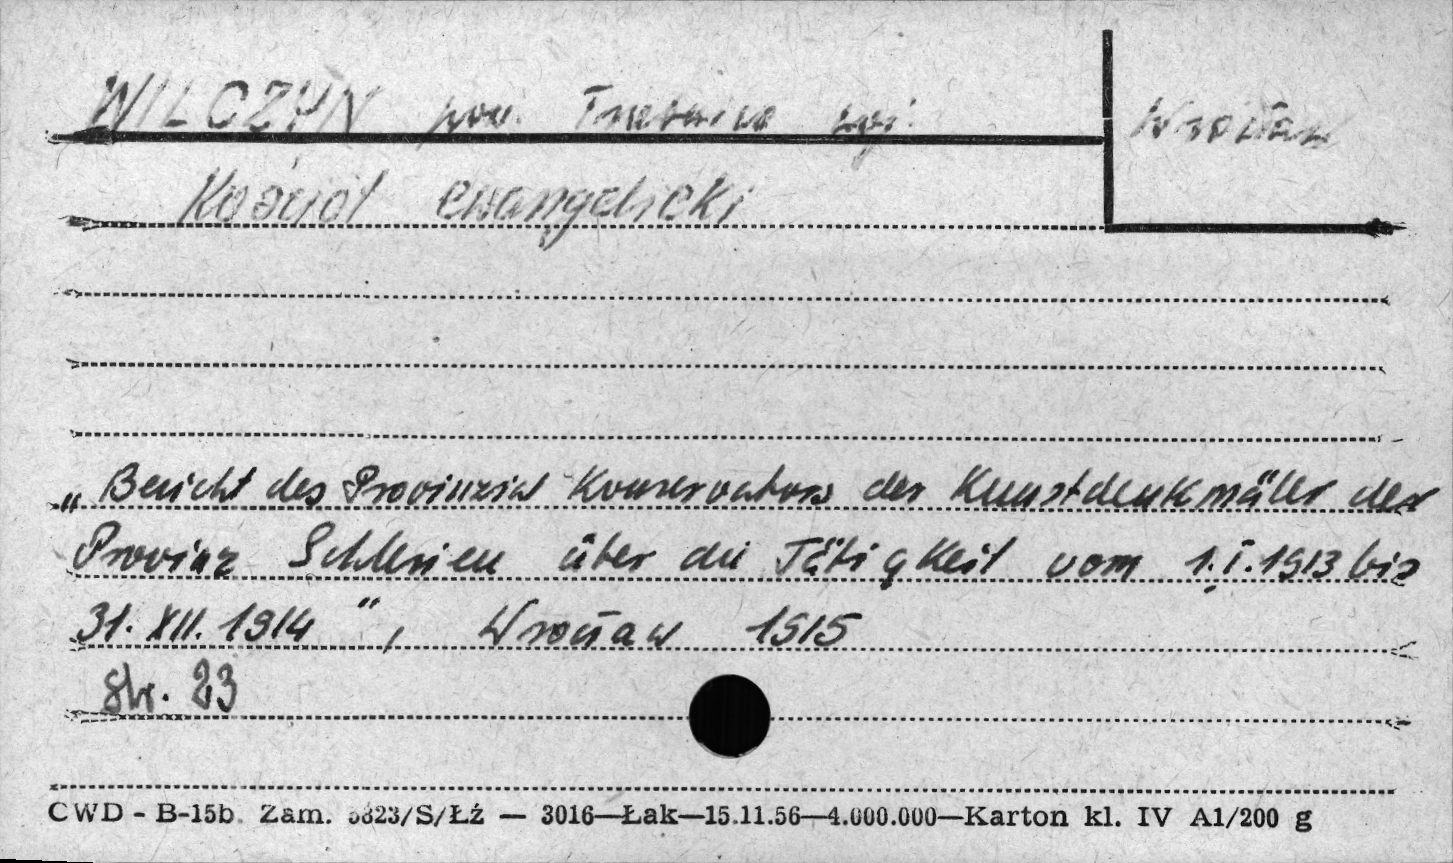 WILCZYN pow. Trzebnica woj. Wrocław
Kościół ewangelicki
„Bericht des Provinzial Konservators der Kunstdenkmäler der
Provinz Schlesien über die Tätigkeit vom 1.I.1913 bis
31.XII.1914", Wrocław 1915
str. 23
CWD - B-15b. Zam. 5823/S/Łź — 3016—Łak—15.11.56—4.000.000—Karton kl. IV A1/200 g